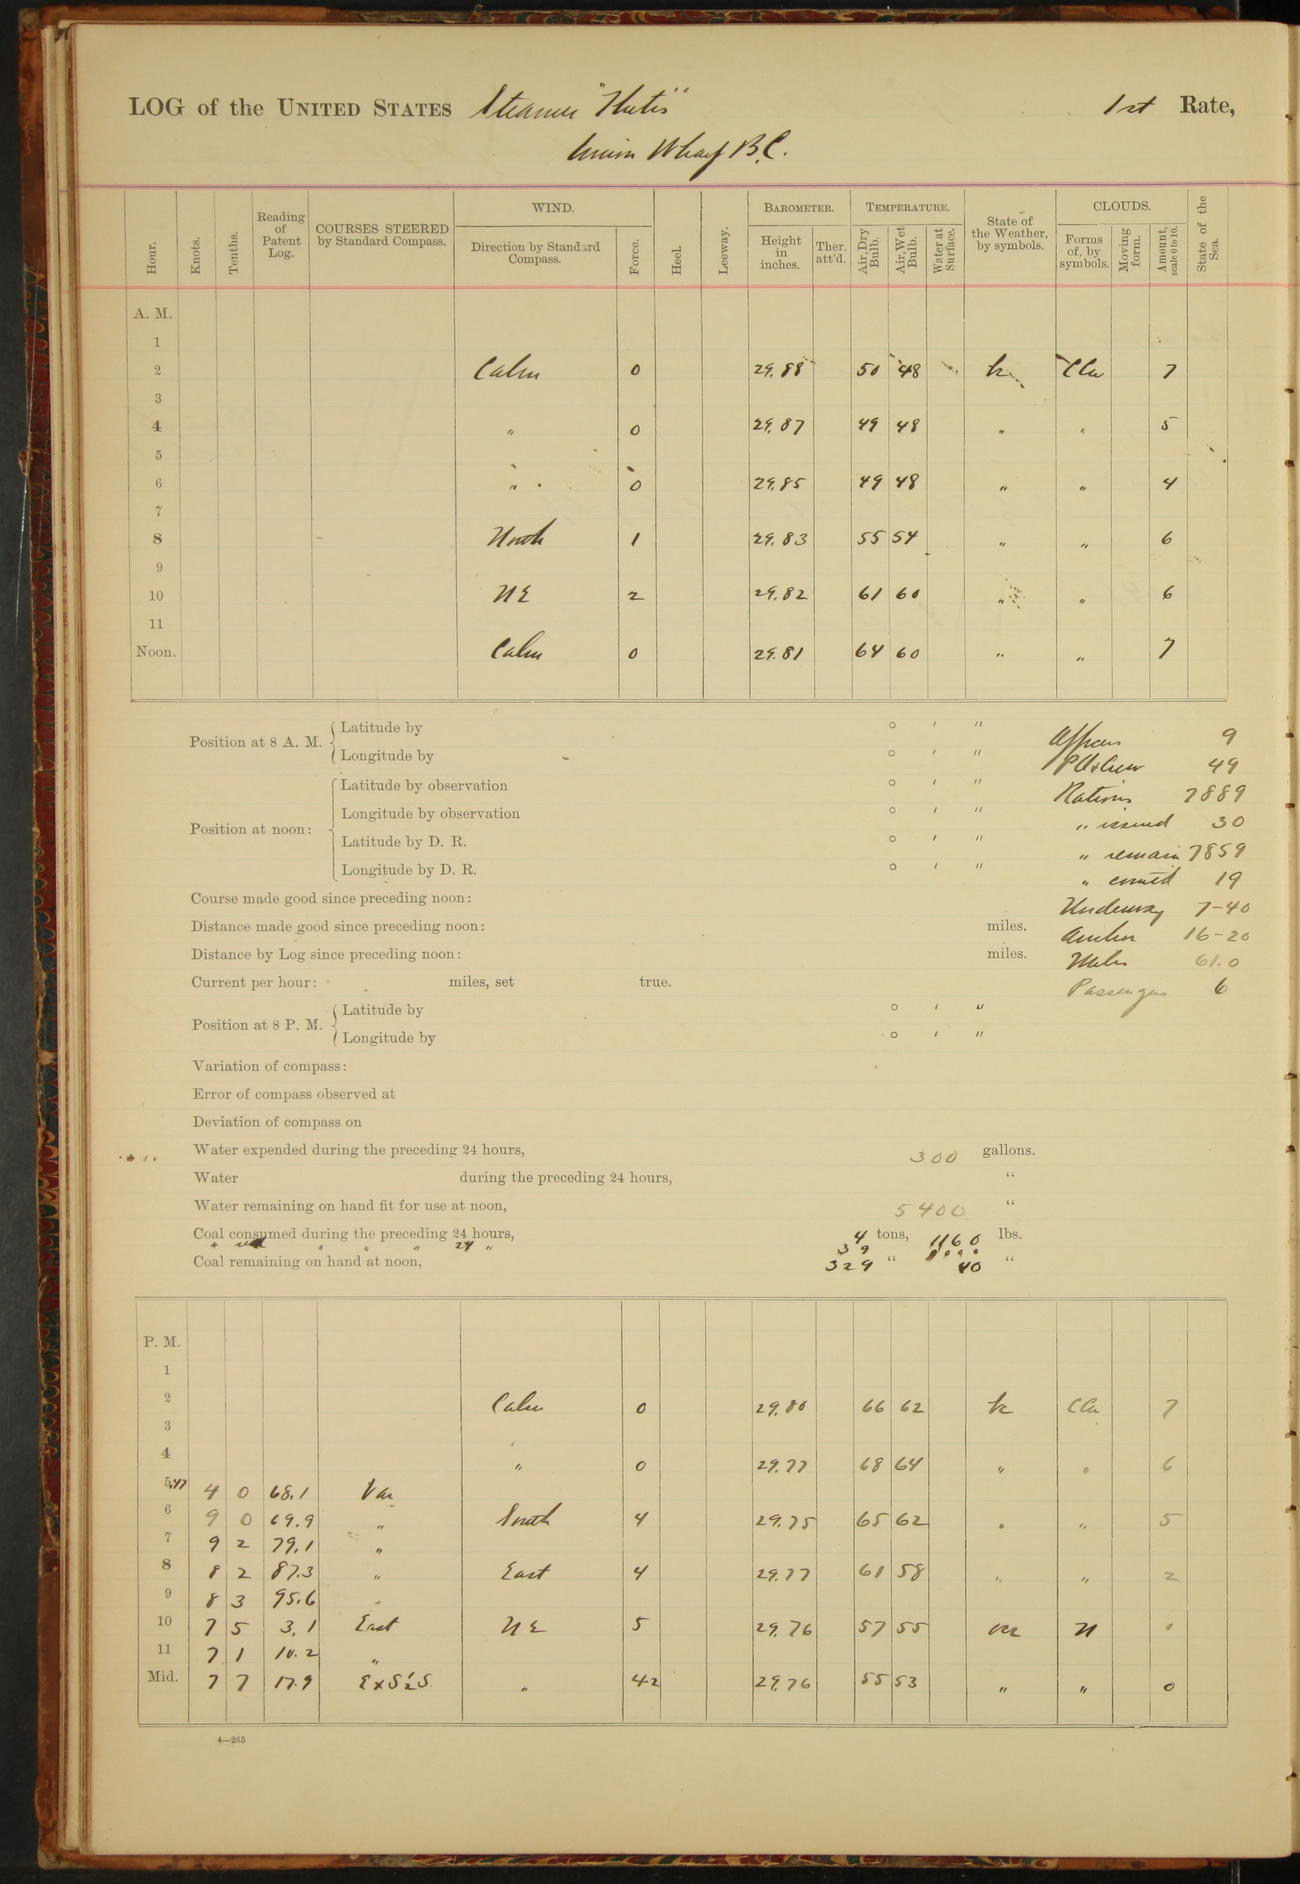 LOG of the UNITED STATES Steamer "Thetis" 1st Rate,
Union Wharf B.C.
Hour. Knots. Tenths. Reading of Patent Log. COURSES STEERED by Standard Compass. WIND. Direction by Standard Compass. Force. Heel. Leeway. BAROMETER. Height in inches. Ther. att'd. TEMPERATURE. Air, Dry Bulb. Air, Wet Bulb. Water at Surface. State of the Weather, by symbols. CLOUDS. Forms of, by symbols. Moving form. Amount, scale 0 to 10. State of the Sea.
A. M.
1
2 Calm 0 29.88 50 48 bc CCu 7
3
4 " 0 29.87 49 48 " " 5
5
6 " 0 29.85 49 48 " " 4
7
8 North 1 29.83 55 54 " " 6
9
10 NE 2 29.82 61 60 " " 6
11
Noon. Calm 0 29.81 64 60 " " 7
Position at 8 A. M. { Latitude by ° ' "
Longitude by ° ' "
Officers 9
Position at noon: { Latitude by observation ° ' "
P.O.&Crew 49
Longitude by observation ° ' "
Rations 7889
Latitude by D. R. ° ' "
" issued 30
Longitude by D. R. ° ' "
" remain 7859
Course made good since preceding noon:
" comtd 19
Distance made good since preceding noon: miles.
Underway 7-40
Distance by Log since preceding noon: miles.
Anchor 16-20
Miles 61.0
Current per hour: miles, set true.
Passengers 6
Position at 8 P. M. { Latitude by ° ' "
Longitude by ° ' "
Variation of compass:
Error of compass observed at
Deviation of compass on
Water expended during the preceding 24 hours, 300 gallons.
Water during the preceding 24 hours, "
Water remaining on hand fit for use at noon, 5400 "
Coal consumed during the preceding 24 hours, 4 tons, 1160 lbs.
" " " " 24 " 39
Coal remaining on hand at noon, 329 " 40 "
P. M.
1
2 Calm 0 29.80 66 62 bc CCu 7
3
4 " 0 29.77 68 64 " " 6
5,47 4 0 68.1 Var
6 9 0 69.9 " South 4 29.75 65 62 " " 5
7 9 2 79.1 "
8 8 2 87.3 " East 4 29.77 61 58 " " 2
9 8 3 95.6 "
10 7 5 3.1 East NE 5 29.76 57 55 N 0
11 7 1 10.2 "
Mid. 7 7 17.9 ExS½S " 4-2 29.76 55 53 " " 0
4—265